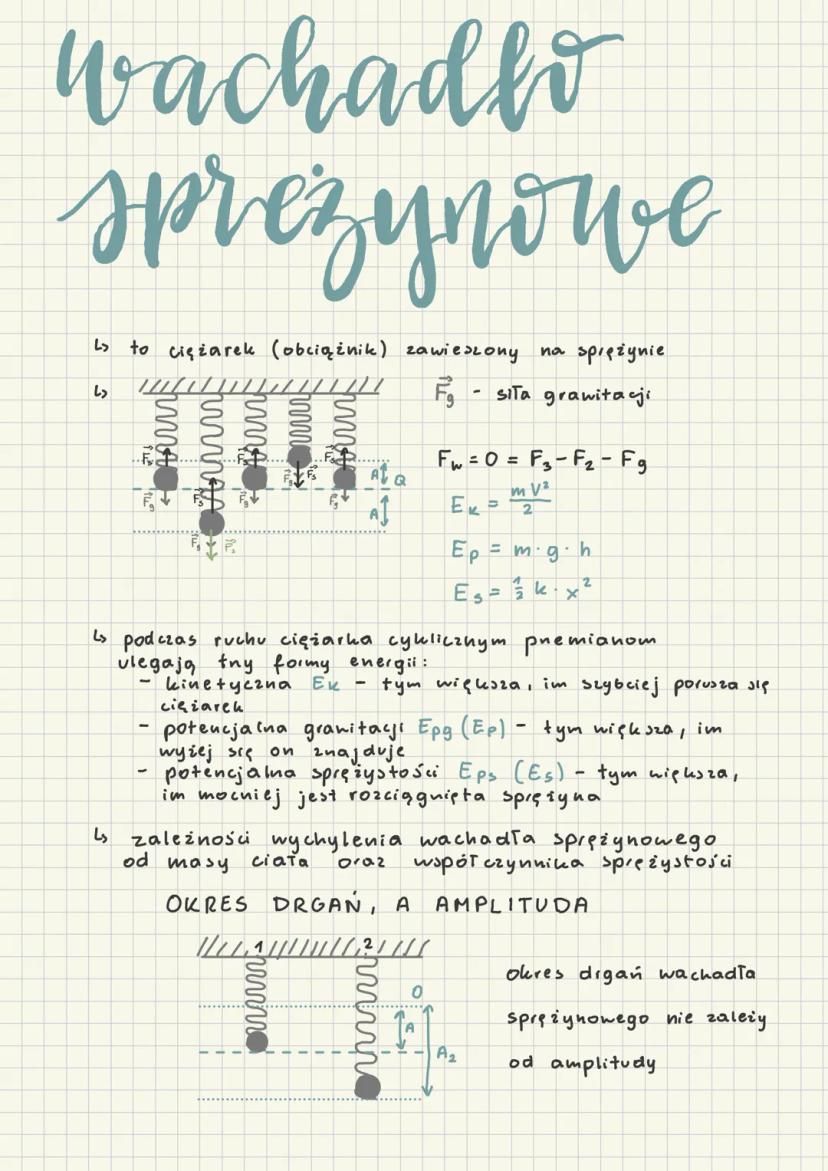 wachadło
sprężynowe
↳ to ciężarek (obciążnik) zawieszony na sprężynie
↳
F⃗g - siła grawitacji
F⃗s F⃗s F⃗s F⃗s F⃗s
F⃗g F⃗g F⃗g F⃗g F⃗g
A Q
A
Fw = 0 = F3 - F2 - Fg
Ek = mV²/2
Ep = m · g · h
Es = ½ k · x²
↳ podczas ruchu ciężarka cyklicznym przemianom
ulegają trzy formy energii:
- kinetyczna Ek - tym większa, im szybciej porusza się
ciężarek
- potencjalna grawitacji Epg (Ep) - tym większa, im
wyżej się on znajduje
- potencjalna sprężystości Eps (Es) - tym większa,
im mocniej jest rozciągnięta sprężyna
↳ zależności wychylenia wachadła sprężynowego
od masy ciała oraz współczynnika sprężystości
OKRES DRGAŃ, A AMPLITUDA
1 2
O
A
A2
okres drgań wachadła
sprężynowego nie zależy
od amplitudy